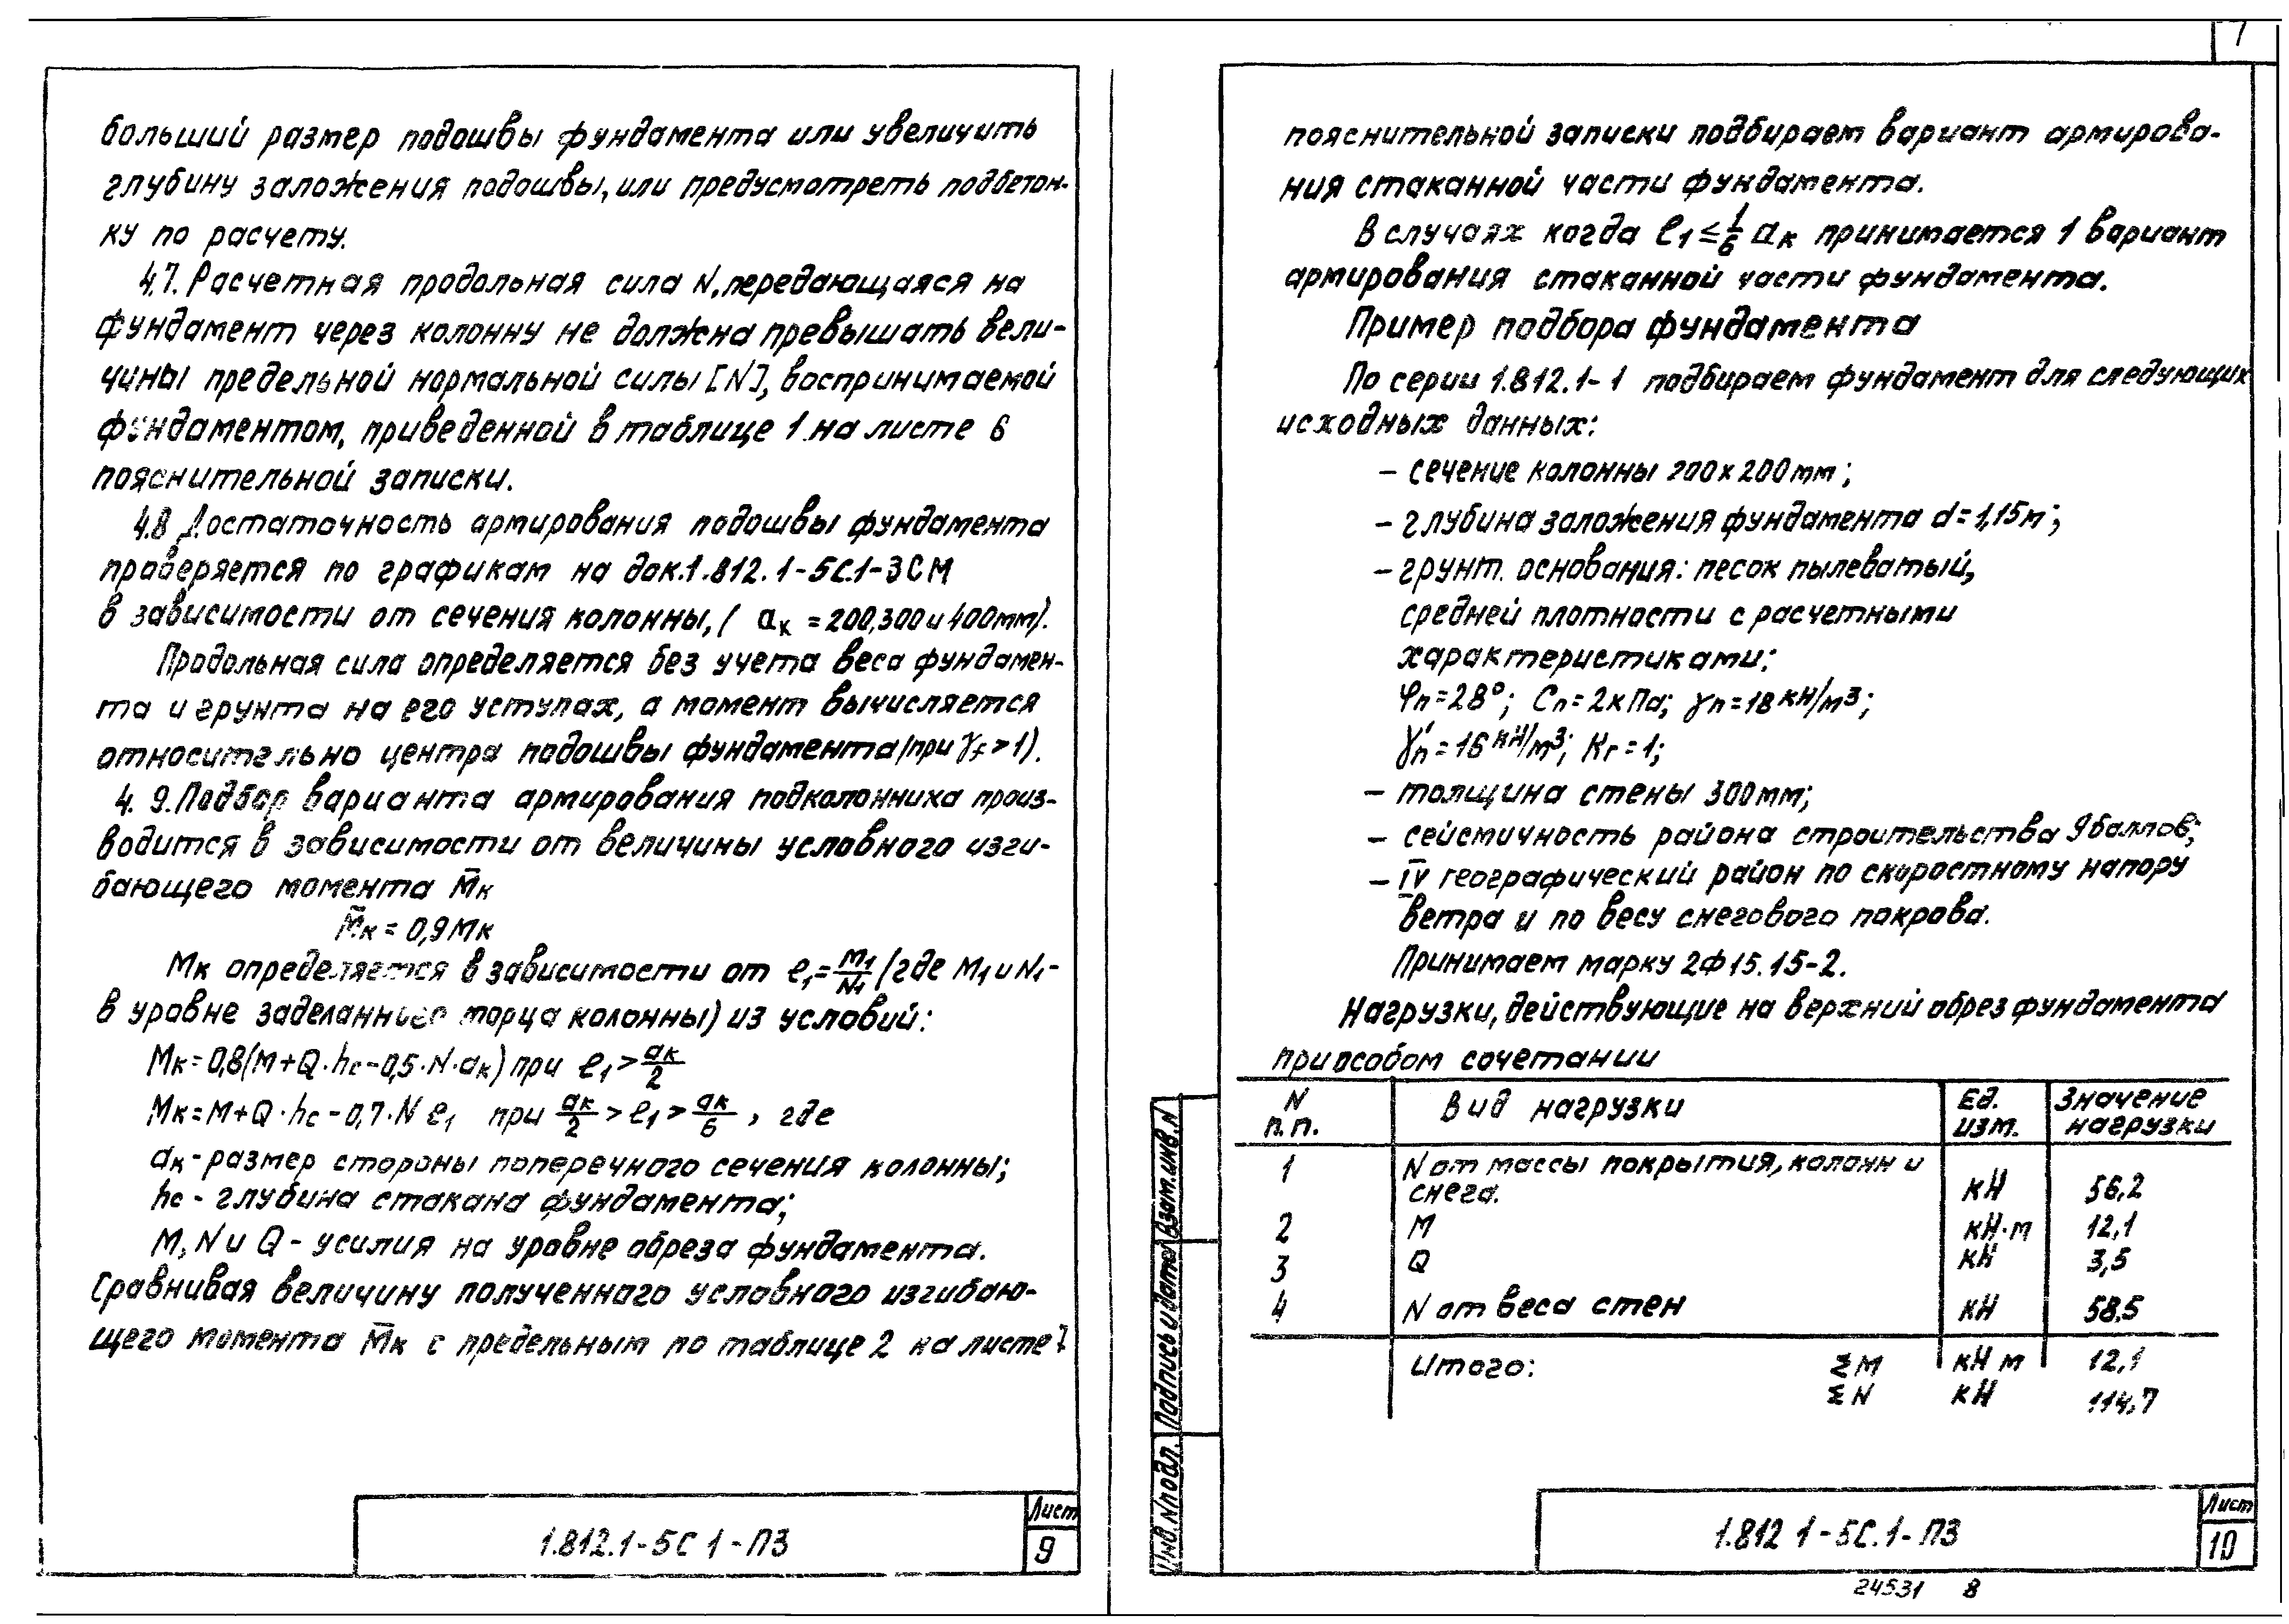 7
больший размер подошвы фундамента или увеличить
глубину заложения подошвы, или предусмотреть подбетон-
ку по расчету.
4.7. Расчетная продольная сила N, передающаяся на
фундамент через колонну не должна превышать вели-
чины предельной нормальной силы [N], воспринимаемой
фундаментом, приведенной в таблице 1 на листе 6
пояснительной записки.
4.8 Достаточность армирования подошвы фундамента
проверяется по графикам на док.1.812.1-5С.1-3СМ
в зависимости от сечения колонны, ( aк = 200,300 и 400мм).
Продольная сила определяется без учета веса фундамен-
та и грунта на его уступах, а момент вычисляется
относительно центра подошвы фундамента (при γf > 1).
4.9. Подбор варианта армирования подколонника произ-
водится в зависимости от величины условного изги-
бающего момента M̄к
M̄к = 0,9Mк
Mк определяется в зависимости от e₁ = M₁/N₁ (где M₁ и N₁-
в уровне заделанного торца колонны) из условий:
Mк = 0,8(M+Q·hc-0,5·N·aк) при e₁ > aк/2
Mк = M+Q·hc-0,7·N e₁ при aк/2 > e₁ > aк/6 , где
aк - размер стороны поперечного сечения колонны;
hc - глубина стакана фундамента;
M, N и Q - усилия на уровне обреза фундамента.
Сравнивая величину полученного условного изгибаю-
щего момента M̄к с предельным по таблице 2 на листе 7
1.812.1-5С 1-ПЗ
Лист
9
пояснительной записки подбираем вариант армирова-
ния стаканной части фундамента.
В случаях когда e₁ ≤ 1/6 aк принимается 1 вариант
армирования стаканной части фундамента.
Пример подбора фундамента
По серии 1.812.1-1 подбираем фундамент для следующих
исходных данных:
- сечение колонны 200х200мм;
- глубина заложения фундамента d=1,15м;
- грунт. основания: песок пылеватый,
средней плотности с расчетными
характеристиками:
φn=28°; Cn=2кПа; γn=18 кН/м³;
γ'n=16 кН/м³; Kг=1;
- толщина стены 300мм;
- сейсмичность района строительства 9баллов;
- IV географический район по скоростному напору
ветра и по весу снегового покрова.
Принимаем марку 2Ф15.15-2.
Нагрузки, действующие на верхний обрез фундамента
при особом сочетании
N п.п. Вид нагрузки Ед. изм. Значение нагрузки
1 N от массы покрытия, колонн и
снега. кН 56,2
2 M кН·м 12,1
3 Q кН 3,5
4 N от веса стен кН 58,5
Итого: ΣM кН м 12,1
ΣN кН 114,7
Инв.N подл. Подпись и дата Взам.инв.N
1.812 1-5С.1-ПЗ
Лист
10
24531 8